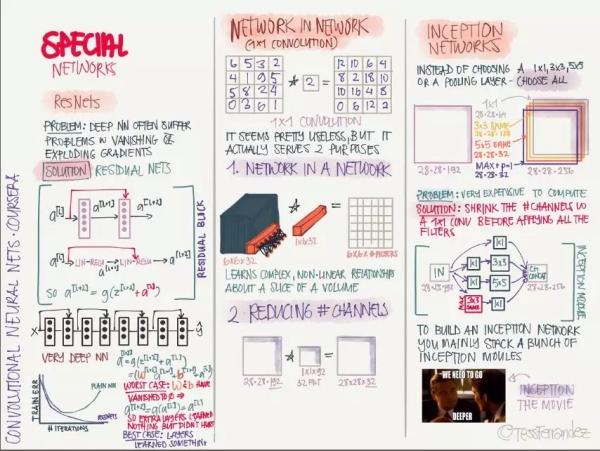 SPECIAL
NETWORKS
ResNets
PROBLEM: DEEP NN OFTEN SUFFER
PROBLEMS W VANISHING OR
EXPLODING GRADIENTS
SOLUTION RESIDUAL NETS
a[l] a[l+1] a[l+2]
RESIDUAL BLOCK
a[l] LIN-RELU LIN-RELU a[l+2]
a[l+1]
SO a[l+2] = g(z[l+2] + a[l])
X ŷ
VERY DEEP NN
a[l+2] = g(z[l+2] + a[l])
TRAIN ERR
PLAIN NN
RESNETS
# ITERATIONS
WORST CASE: W & b HAVE
VANISHED TO 0 ⇒
SO EXTRA LAYERS LEARNED
NOTHING BUT DIDN'T HURT
BEST CASE: LAYERS
LEARNED SOMETHING
CONVOLUTIONAL NEURAL NETS · COURSERA
NETWORK IN NETWORK
(1x1 CONVOLUTION)
6 5 3 2
4 1 9 5
5 8 2 4
0 3 6 1
* 2 =
12 10 6 4
8 2 18 10
10 16 4 8
0 6 12 2
1x1 CONVOLUTION
IT SEEMS PRETTY USELESS, BUT IT
ACTUALLY SERVES 2 PURPOSES
1. NETWORK IN A NETWORK
*
=
6x6x32
1x1x32
6x6x #FILTERS
LEARNS COMPLEX, NON-LINEAR RELATIONSHIPS
ABOUT A SLICE OF A VOLUME
2 REDUCING # CHANNELS
* =
28·28·192
1x1x192
32 FILT
28x28x32
INCEPTION
NETWORKS
INSTEAD OF CHOOSING A 1x1, 3x3, 5x5
OR A POOLING LAYER - CHOOSE ALL
1x1
28·28·64
3x3 SAME
28·28·128
5x5 SAME
28·28·32
MAX + p=1
28·28·32
28·28·192
28·28·256
PROBLEM: VERY EXPENSIVE TO COMPUTE
SOLUTION: SHRINK THE # CHANNELS W
A 1x1 CONV BEFORE APPLYING ALL THE
FILTERS
IN
28·28·192
1x1
1x1 3x3
1x1 5x5
3x3 SAME 1x1
CH CONCAT
28·28·256
INCEPTION MODULE
TO BUILD AN INCEPTION NETWORK
YOU MAINLY STACK A BUNCH OF
INCEPTION MOULES
WE NEED TO GO
DEEPER
INCEPTION
THE MOVIE
©TessFerrandez